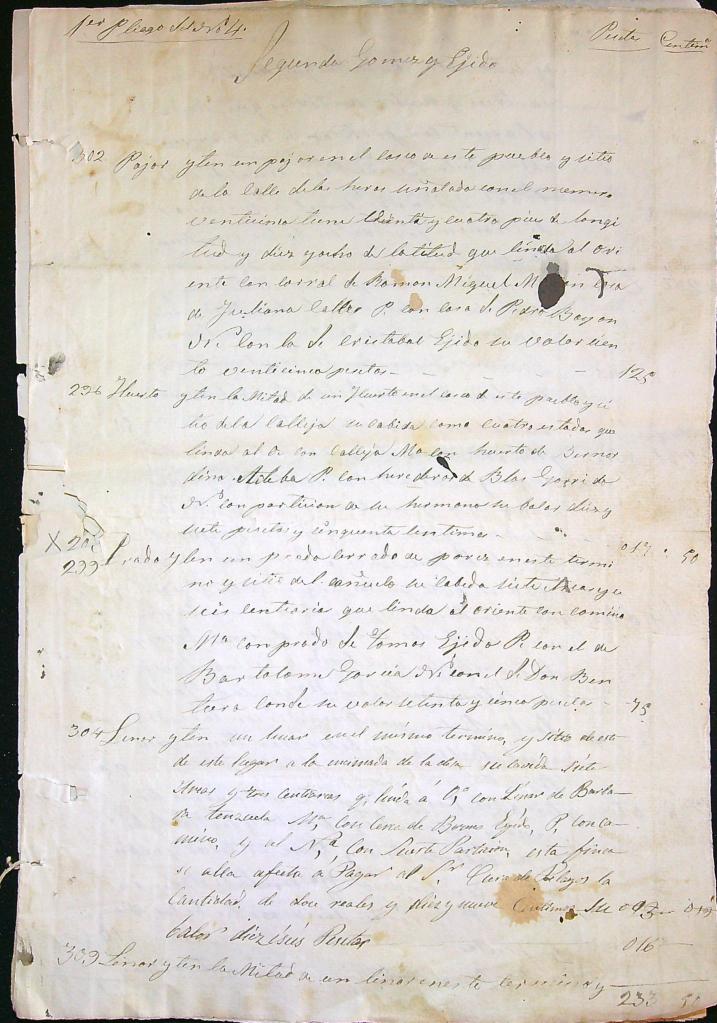 1er pliego del No 4. Peseta Centim
Segunda Gomez y Ejido
302 Pajar yten un pajar en el casco de este pueblo y sitio
de la Calle de las heras señalada con el numero
venticinco tiene treinta y cuatro pies de longi
tud y diez y ocho de latitud que linda al Ori
ente con corral de Ramon Miguel M con casa
de Juliana P. con casa de Pedro Bayon
N. con la de Cristobal Ejido su valor cien
to venticinco pesetas 125
296 Huerto yten la Mitad de un Huerto en el casco de este pueblo y si
tio de la Calleja su cabida como cuatro estadas que
linda al O con Calleja M con huerto de Berner
dina P. con herederos de Blas Garrido
N. con particion de su hermano su balor diez y
siete pesetas y cinquenta centimos 017 50
X 20
299 Prado yten un prado cerrado de pared en este termi
no y sitio del cañuelo su cabida siete areas y
seis centiarias que linda al oriente con camino
Mn con prado de tomas Ejido P. con el de
Bartolome Garcia N. con el de Don Ben
tura Conde su valor setenta y cinco pesetas 75
304 Linar yten un linar en el mismo termino, y sitio de este
de este lugar a la su cavida siete
areas y tres centiaras q. linda á O. con Linar de Barto
M. con Cerca de Ejido, P. con ca
mino, y al N. con Suerte Particion, esta finca
se alla afecta á Pagar al Sr. Cura de la
Cantidad, de dos reales y diez y nueve Centimos Su
balor diez i séis Pesetas 016
303 Linar yten la Mitad de un linar en este termino y
233 50